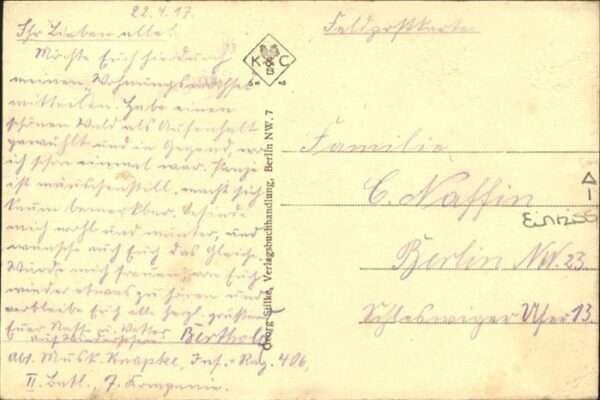 22.4.17.
Ihr Lieben alle!
Möchte Euch hierdurch
meinen Wohnungswechsel
mitteilen. Habe einen
schönen Wald als Aufenthalt
gewählt und in Gegend, wo
ich schon einmal war. Panje
ist mäuschenstill, macht sich
kaum bemerkbar. Befinde
mich wohl und munter, und
wünsche auch Euch das Gleiche.
Würde mich freuen, von Euch
wieder etwas zu hören und
verbleibe Euch alle herzl. grüßend
Euer Neffe u. Vetter Berthold
auf Wiedersehen
Abs. Musk. Inf.-Reg. 406,
II. Batl., 7. Kompanie.
K & C
B
Georg Stilke, Verlagsbuchhandlung, Berlin NW. 7
Feldpostkarte
Familie
C. Naffin
Berlin NW. 23
Schleswiger Ufer 13.